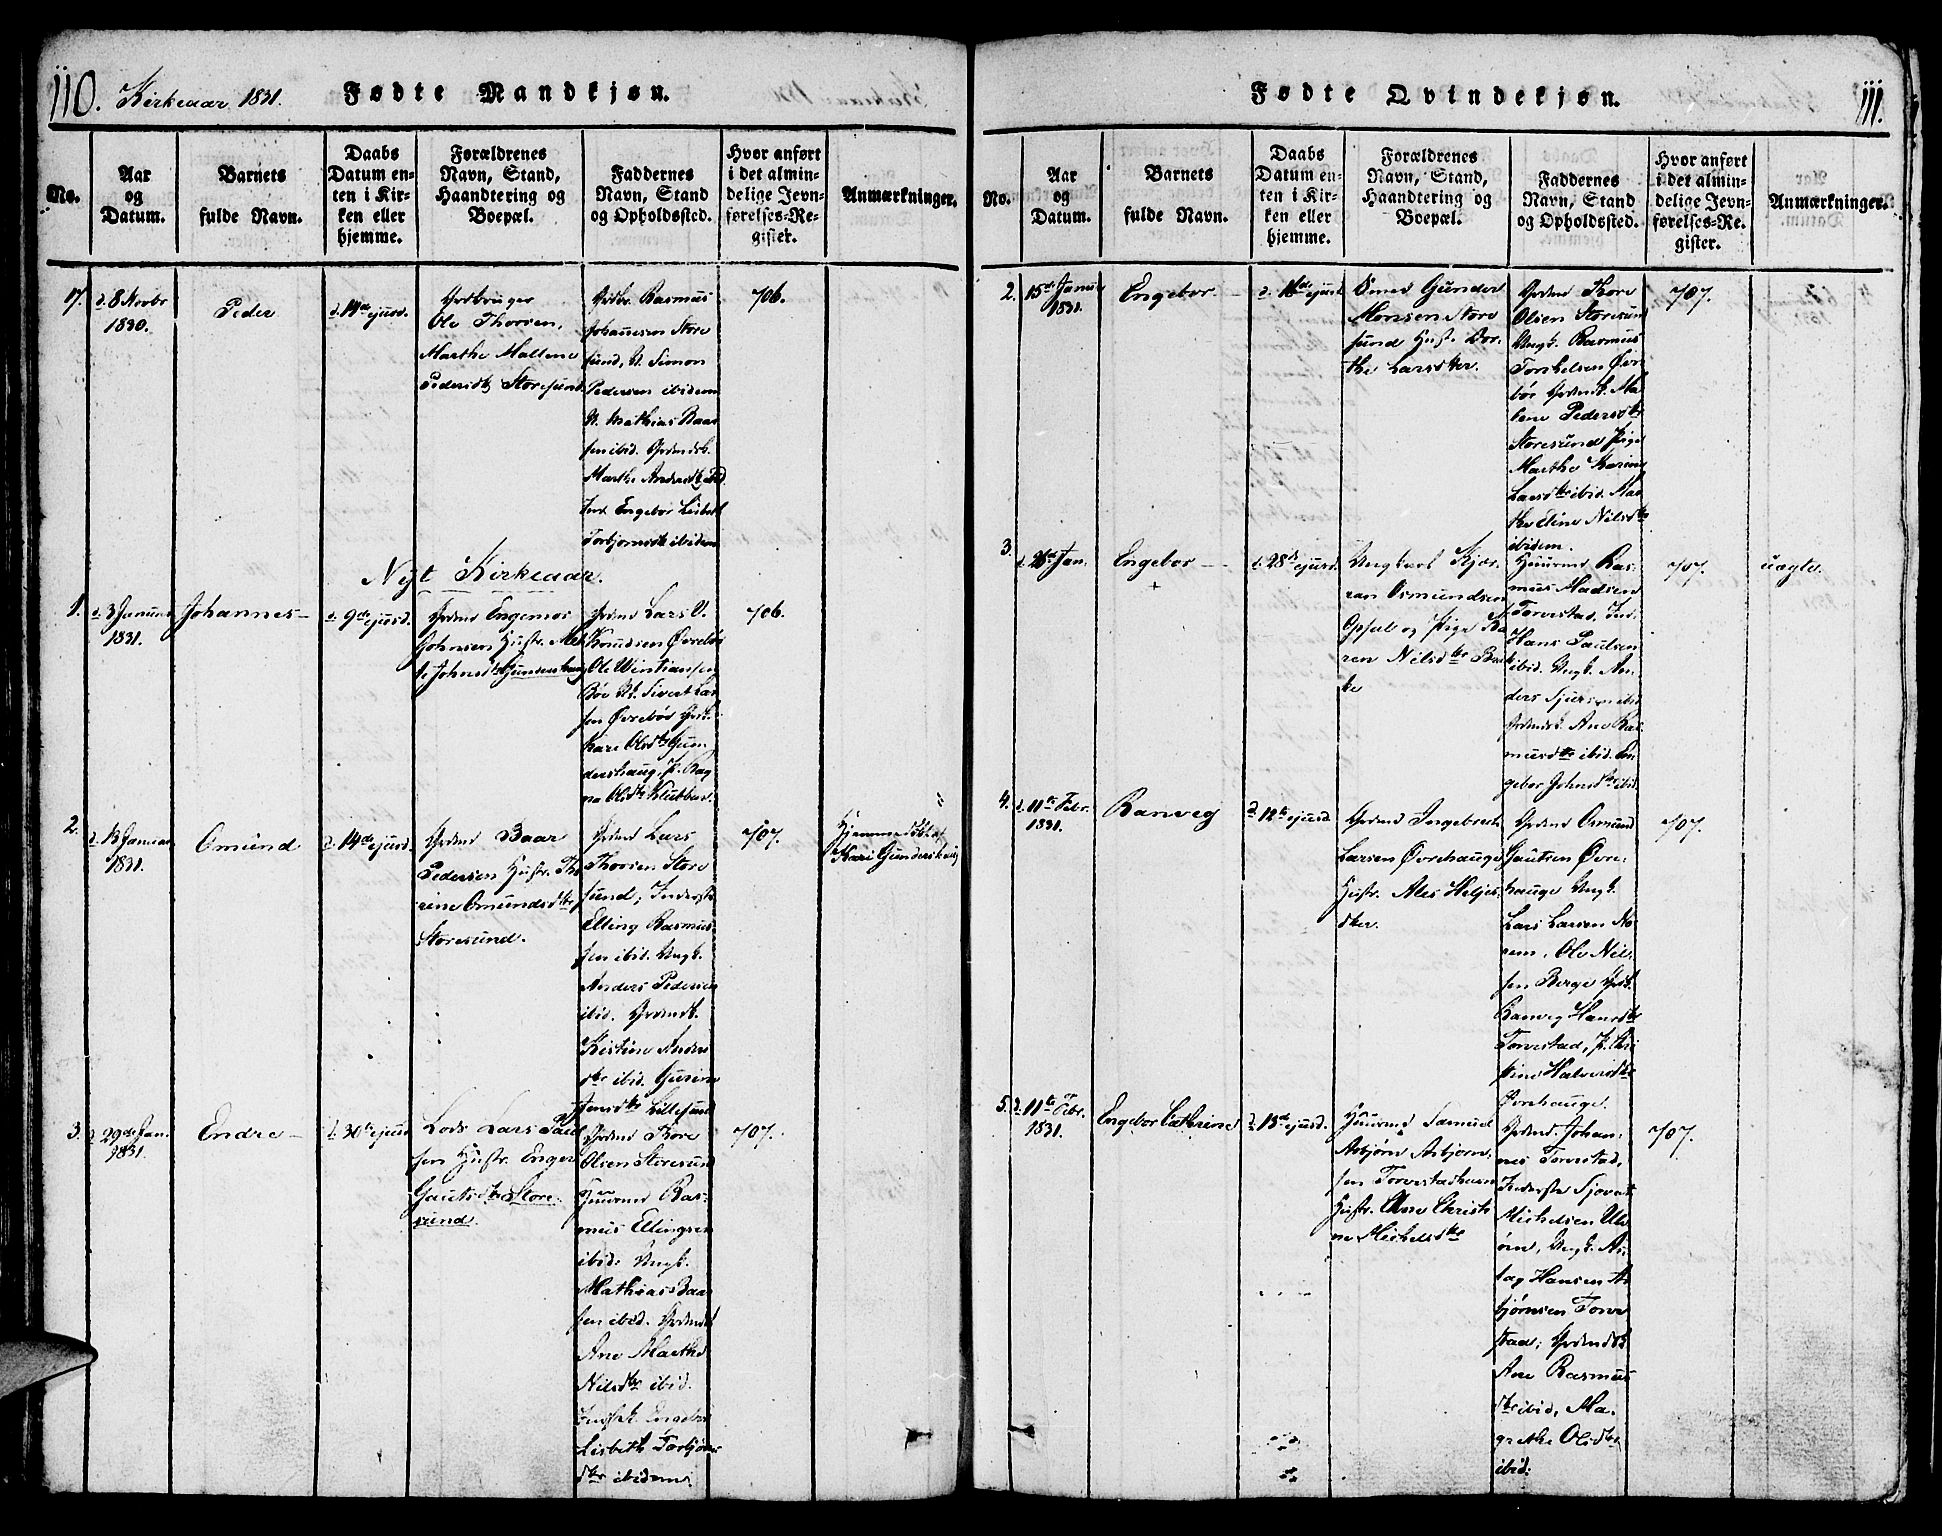 110. Kirkeaar 1831. Fødte Mandkjøn.
No.
Aar
og
Datum.
Barnets
fulde Navn.
Daabs
Datum en-
ten i Kir-
ken eller
hjemme.
Forældrenes
Navn, Stand,
Haandtering og
Boepæl.
Faddernes
Navn, Stand
og Opholdssted.
Hvor anført
i det almin-
delige Jevn-
førelses-Re-
gister.
Anmærkninger.
17.
d. 8 Novbr
1830.
Peder
d. 14de ejusd.
Ole Thorsen,
Marthe Mallene
Pedersdtr Storesund
Rasmus
Johannesen Store
sund, U. Simon
Pedersen ibidem
U. Mathias Baar
sen ibid.
Marthe Andersdtr ibid.
Engebor Lisbeth
Torbjørnsdtr ibidem
706.
Nyt Kirkeaar.
1.
d. 3 Januar
1831.
Johannes
d. 9de ejusd.
Grdmd Engemos
Johnsen Hustr. Met
te Johnsdtr Gundershaug
Grdmd Lars
Knudsen Øvrebøe
Ole
Bøe Sivert Lar
sen Øvrebøe
Kari Olsdtr Gun
dershaug, P. Rag
na Olsdtr Klubben.
706.
2.
d. 13 Januar
1831.
Omund
d. 14de ejusd.
Grdmd Baar
Pedersen Hustr. Tho
rine Omundsdtr
Storesund.
Grdmd Lars
Thorsen Store
sund, Inderst
Elling Rasmus
sen ibid. Ungk.
Anders Pedersen
ibid. Grdmdk.
Kistine Anders
dtr ibid. Gurine
Jensdtr Lillesund
707.
Hjemmedøbt af
Kari Gundershaug
3.
d. 29de Jan.
1831.
Endre
d. 30te ejusd
Lods Lars Paul
sen Hustr. Enger
Gautsdtr Store-
sund.
Grdmd Tore
Olsen Storesund
Huusmd Ras-
mus Ellingsen
ibid. Ungk.
Mathias Baar
sen ibid. Grdmdk
Ane Marthe
Nilsdtr ibid.
Engebor
Lisbeth Torbjørns
dtr ibidem.
707.
Fødte Qvindekjøn. 111.
No.
Aar
og
Datum.
Barnets
fulde Navn.
Daabs
Datum en-
ten i Kir-
ken eller
hjemme.
Forældrenes
Navn, Stand,
Haandtering og
Boepæl.
Faddernes
Navn, Stand
og Opholdssted.
Hvor anført
i det almin-
delige Jevn-
førelses-Re-
gister.
Anmærkninger.
2.
15de Januar
1831.
Engebor.
d. 16de ejusd
Smed Gunder
Monsen Store
sund Hust. Dor-
the Larsdter.
Grdmd Thore
Olsen Storesund
Ungk. Rasmus
Torkelsen Øvre
bøe Grdmdk. Ma
lene Pedersdtr
Storesund Pige
Marthe Karine
Larsdtr ibid. Mar
the Eline Nilsdtr
ibidem.
707.
3.
d. 26de Jan.
Engebor
+
d. 28de ejusd.
Ungkarl
ran Osmundsen
Opsal og Pige Ka
ren Nilsdtr
Huusmd Ras-
mus Madsen
Torvestad, Ind.
Hans Paulsen
ibid. Ungk. An-
ders Sjursen ibid
Grdmdk. Ane Ras-
musdtr ibid. En-
gebor Johnsdtr ibid.
707.
uægte.
4.
d. 11te Febr.
1831.
Ranveg
d. 12te ejusd
Grdmd Ingebreth
Larsen Øvrehauge
Hustr. Ales Helges
dter.
Grdmd Osmund
Gautsen Øvre-
hauge Ungk.
Lars Larsen No
rem, Ole Nil-
sen Berge Grdk.
Ranveg Hansdtr
Torvestad, P.
Halversdtr
Øvrehauge.
707.
5.
d. 11te Febr.
1831.
Engebor Cathrine
d. 13de ejusd.
Huusmd Samuel
Asbjørn Asbjørn-
sen Torvestadhuen
Hustr. Ane Christi
ne Michelsdtr
Grdmd. Johan-
nes Torvestad,
Inderste Sjovat
Michelsen
Ungk. As-
lag Hansen As
bjørnsen Torve
stad, Grdmdk
Ane Rasmus
dtr ibid, Ma-
grethe Olsdtr
ibid.
707.